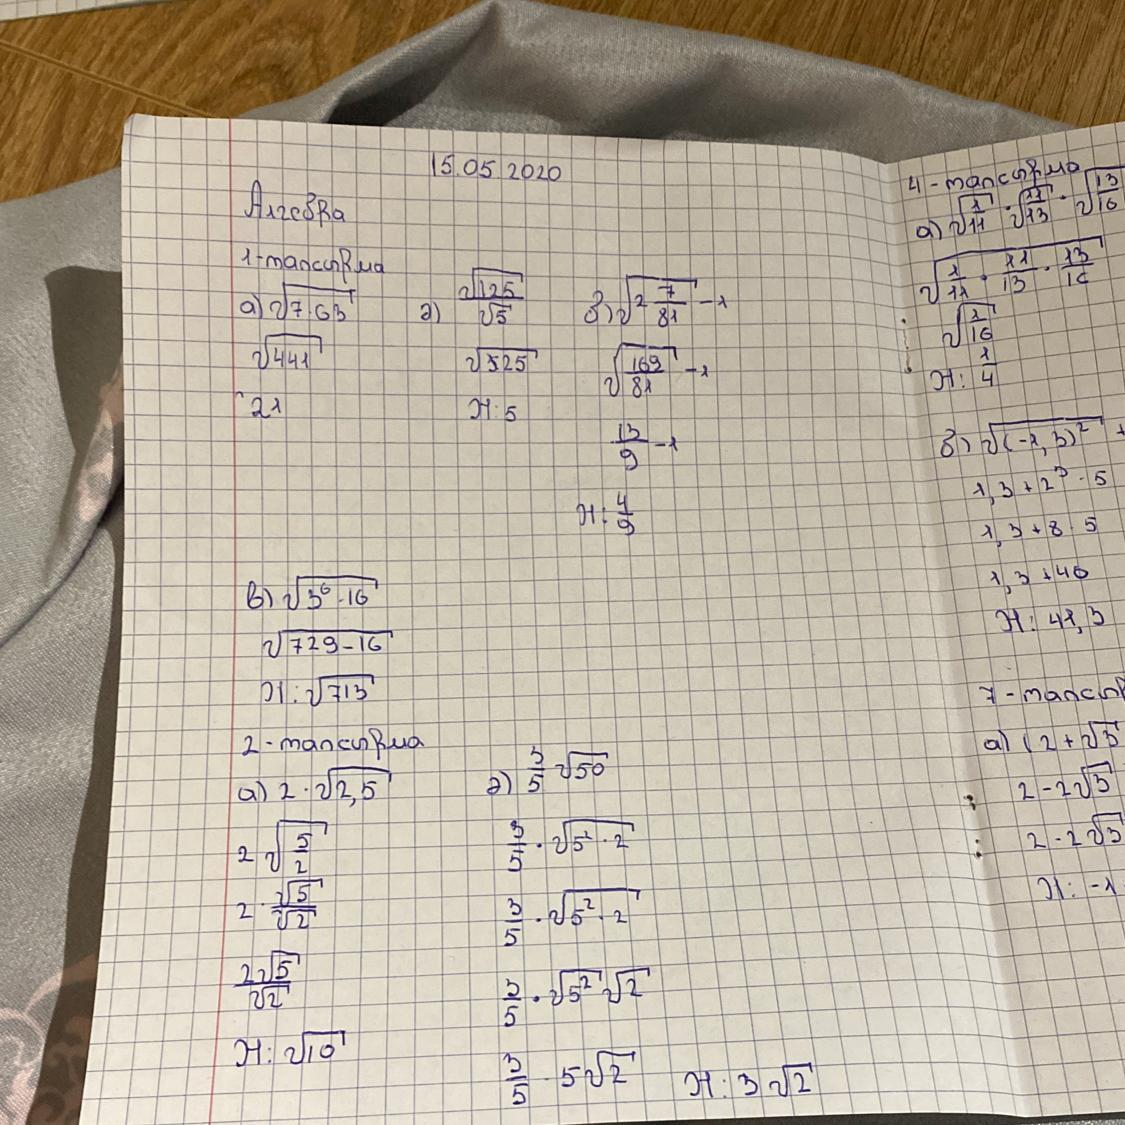 15.05.2020
Алгебра
1-тапсырма
а) √7·63
√441
21
ә) √125/√5
√525
Ж: 5
б) √2 7/81 -1
√169/81 -1
13/9 -1
Ж: 4/9
в) √3⁶·16
√729-16
Ж: √713
2-тапсырма
а) 2·√2,5
2√5/2
2·√5/√2
2√5/√2
Ж: √10
ә) 3/5 √50
3/5·√5²·2
3/5·√5²·2
3/5·√5² √2
3/5·5√2 Ж: 3√2
4-тапсырма
а) √1/11·√11/13·√13/16
√1/11·11/13·13/16
√1/16
Ж: 1/4
б) √(-1,3)² +
1,3+2³·5
1,3+8·5
1,3+40
Ж: 41,3
7-тапсыр
а) (2+√3
2-2√3
2-2√3
Ж: -1